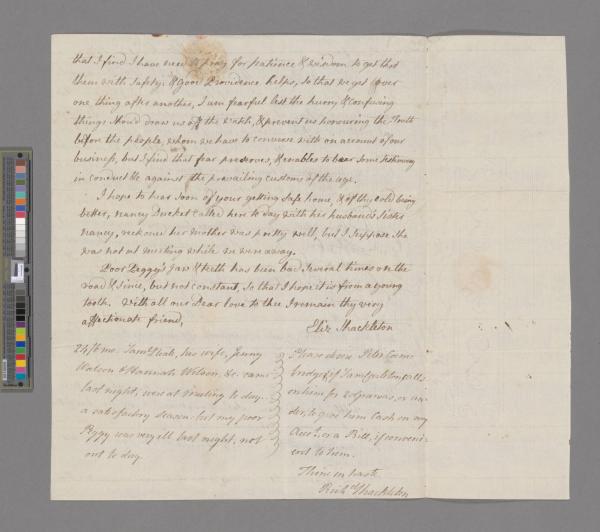 that I find I have need to pray for patience & wisdom to get thro'
them with safety: & good Providence helps, so that we get over
one thing after another, I am fearful lest the hurry & confusing
things should draw us off the watch, & prevent us honouring the Truth
before the people, whom we have to converse with on account of our
business, but I find that fear preserves, & enables to bear some testimony
in conduct &c against the prevailing customs of the age.
I hope to hear soon of your getting safe home, & of thy cold being
better, nancy Ducket called here to day with her husband's sister
nancy, reckons her mother was pretty well, but I suppose she
was not at meeting while we were away.
Poor Peggy's Jaw & teeth has been bad several times on the
road & since, but not constant, so that I hope it is from a young
tooth. With all our dear love to thee I remain thy very
affectionate friend,
Eliz Shackleton
24/6 mo. his wife, Jenny
Watson & Hannah Wilson, &c. came
last night, were at meeting to day.
a satisfactory season: but my poor
Peggy was very ill last night, not
out to day
Please desire Peter
bridge, if calls
on him for , or un-
der, to give him Cash on my
Acct, or a Bill, if conveni-
ent to him.
Thine in haste
Rich Shackleton